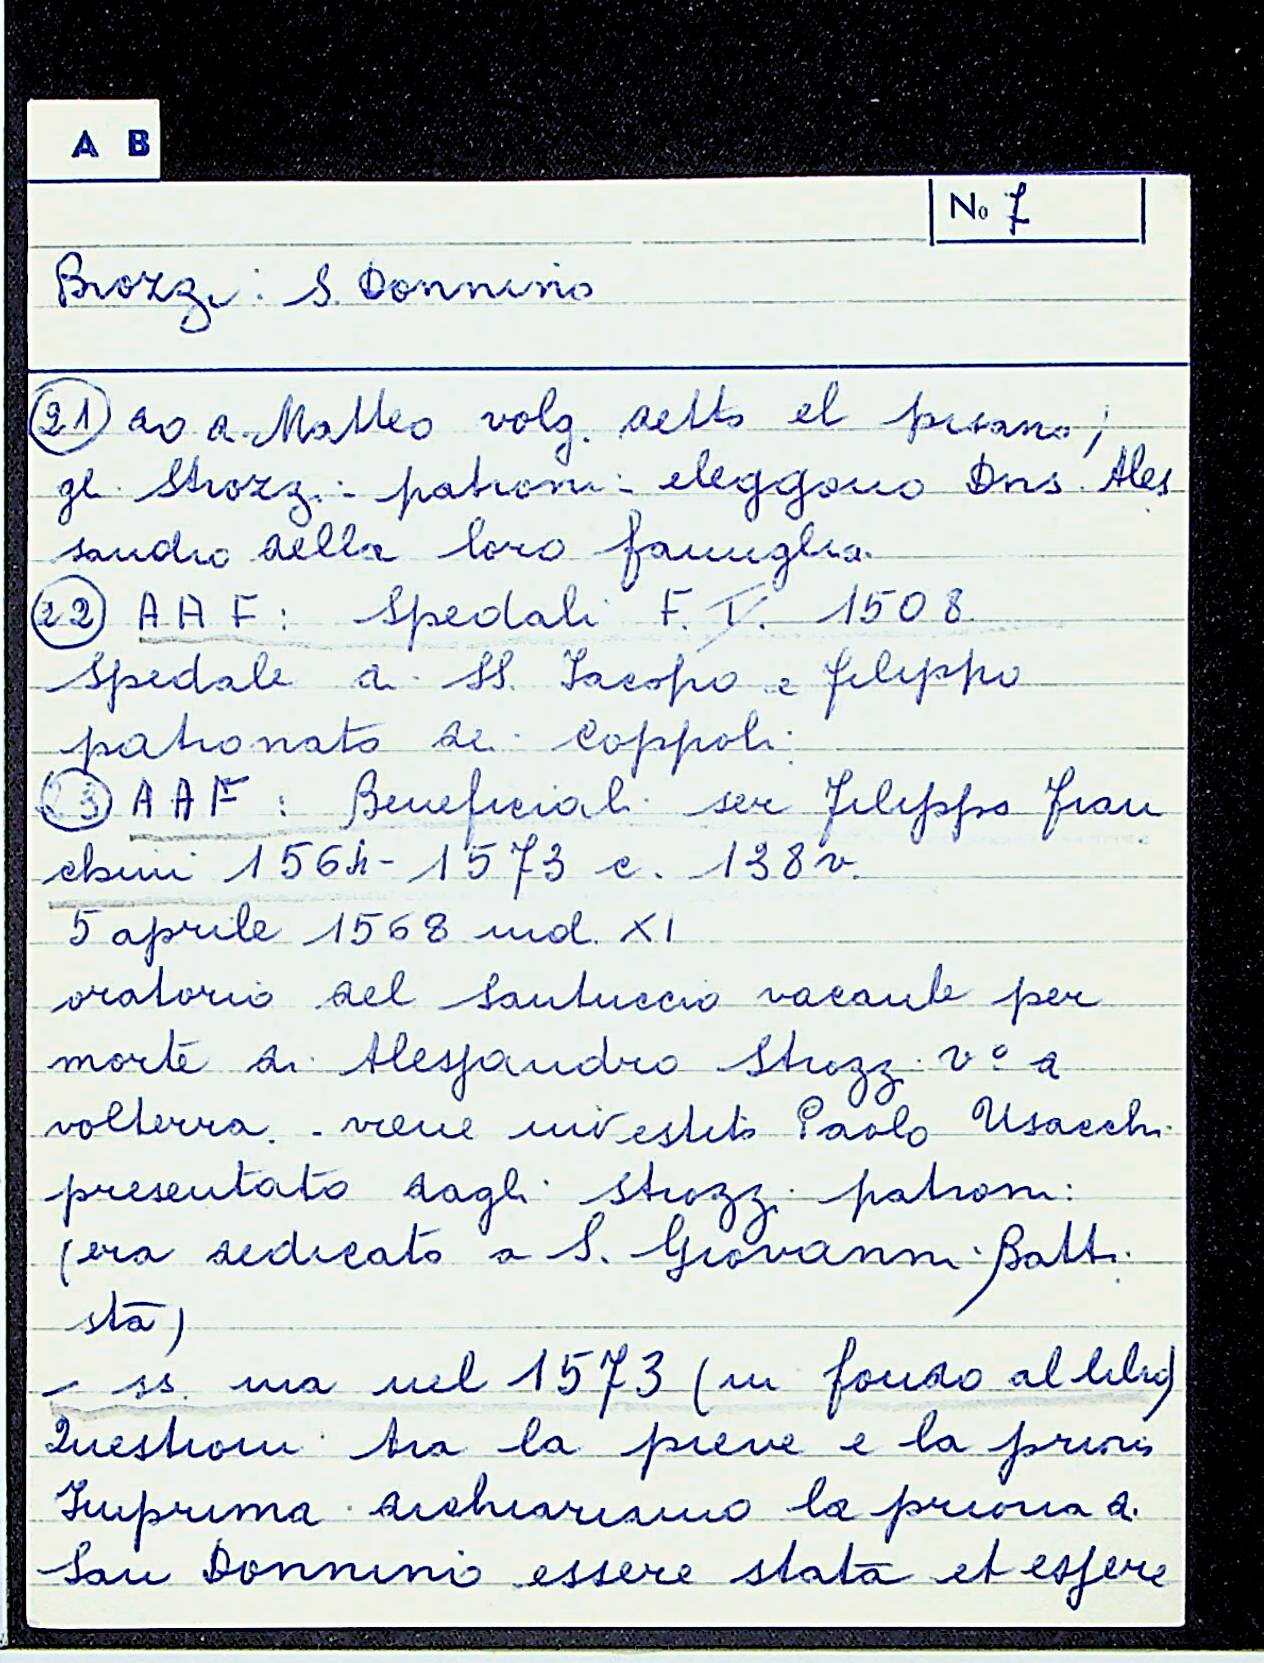 A B
No 7
Brozzi: S. Donnino
21) do d. Matteo volg. detto el pisano;
gli Strozzi - patroni - eleggono Dns. Ales
sandro della loro famiglia.
22) AAF: Spedali F. V. 1508
Spedale di SS. Jacopo e filippo
patronato dei Coppoli
23) AAF: Beneficiali ser Filippo Fran
chini 1564-1573 c. 138v.
5 aprile 1568 ind. XI
oratorio del Santuccio vacante per
morte di Alessandro Strozzi v° di
volterra. - viene investito Paolo Usacchi
presentato dagli Strozzi patroni:
(era dedicato a S. Giovanni Batti
sta)
- ss. ma nel 1573 (in fondo al libro)
Questioni tra la pieve e la prioria
Imprima dichiariamo la prioria di
San Donnino essere stata et essere